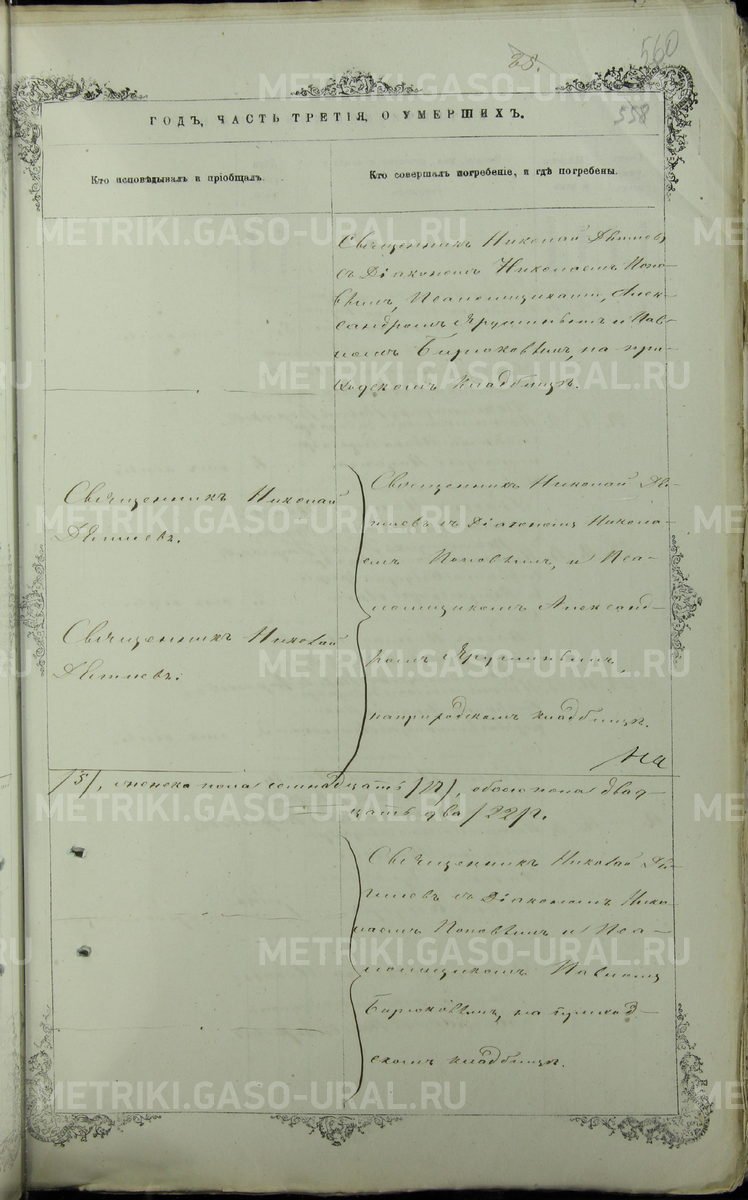 560
25.
558
ГОДЪ, ЧАСТЬ ТРЕТІЯ, О УМЕРШИХЪ.
Кто исповѣдывалъ и пріобщалъ.
Кто совершалъ погребеніе, и гдѣ погребены.
Священникъ Николай
съ Діакономъ Николаемъ Попо-
вымъ, Псаломщиками, Алек-
сандромъ и Пав-
ломъ Бирюковымъ, на при-
ходскомъ кладбищѣ.
Священникъ Николай
Священникъ Николай
Священникъ Николай
съ Діакономъ Никола-
емъ Поповымъ, и Пса-
ломщикомъ Александ-
ромъ
на приходскомъ кладбищѣ.
На
/5/, женска пола семнадцать /17/, обоего пола двад-
цать два /22/.
Священникъ Николай
съ Діакономъ Нико-
лаемъ Поповымъ и Пса-
ломщикомъ Павломъ
Бирюковымъ, на приход-
скомъ кладбищѣ.
METRIKI.GASO-URAL.RU